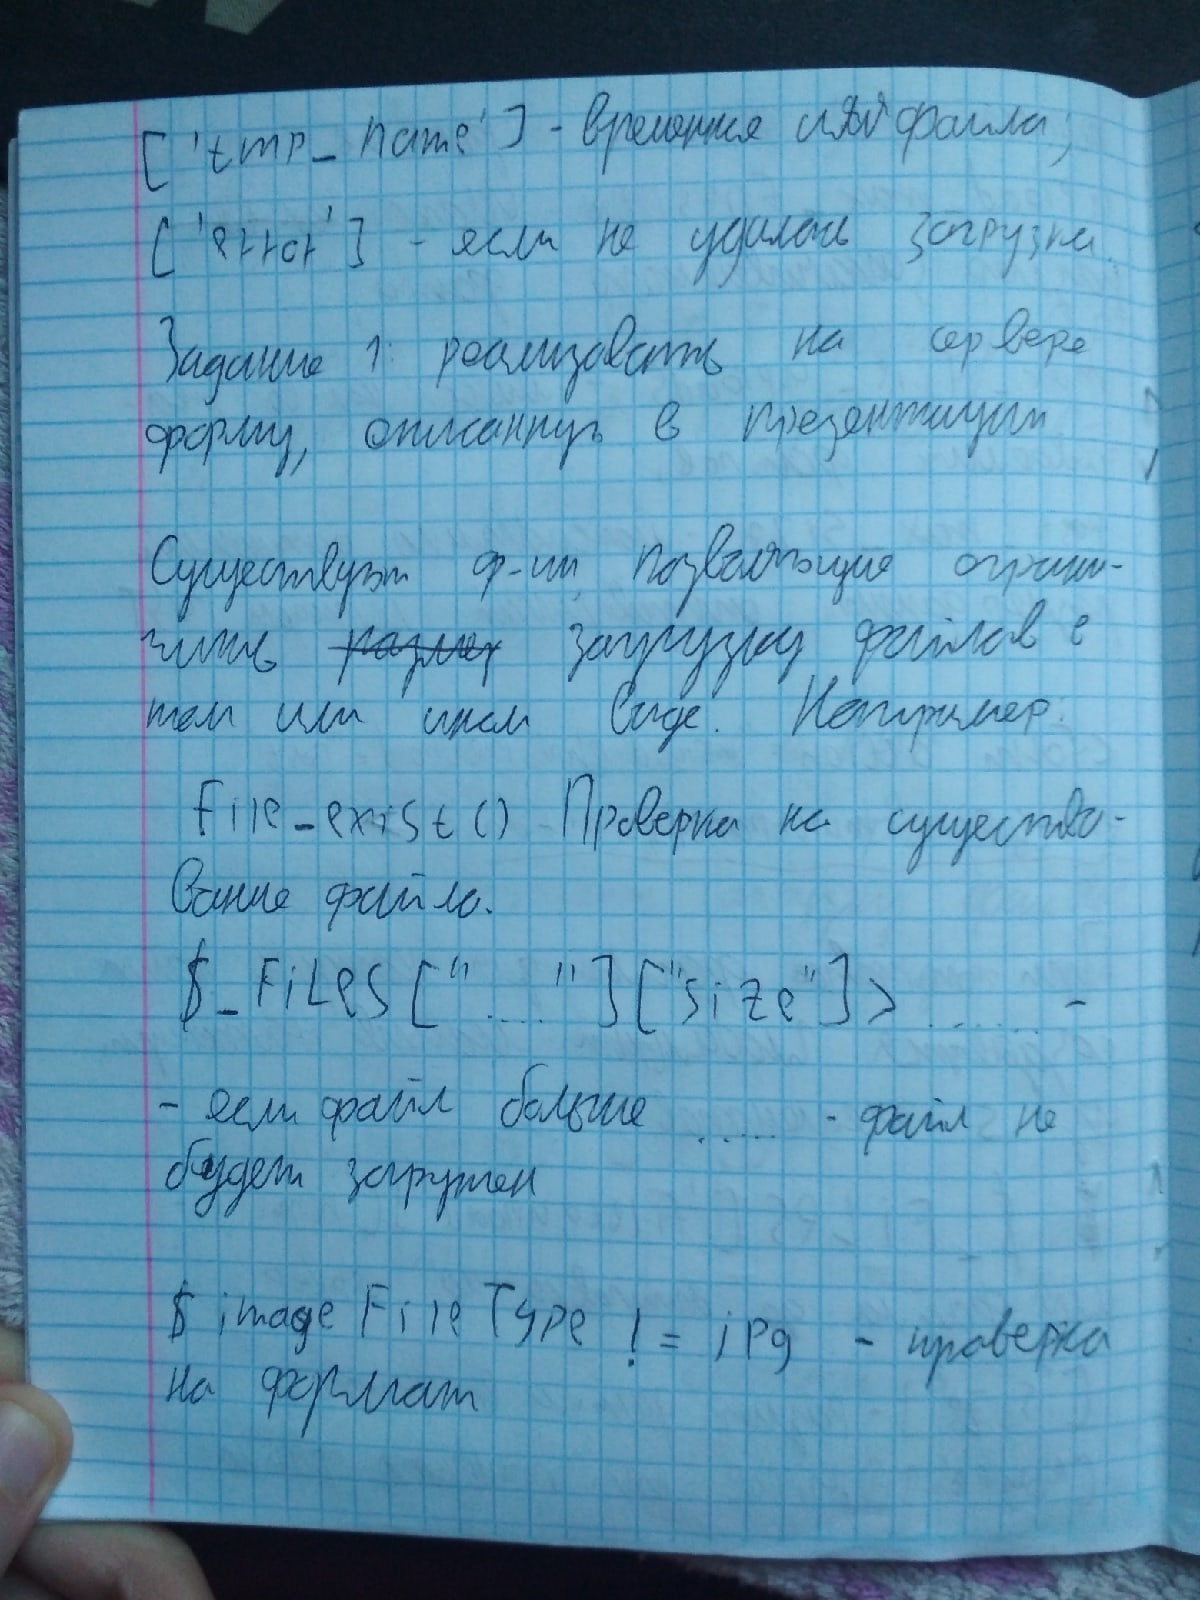 ['tmp_name'] - временная имя файла;
['error'] - если не удалась загрузка.
Задание 1: реализовать на сервере
форму, описанную в презентации
Существуют ф-ии, позваляющие ограни-
чить размер загрузку файлов в
том или ином виде. Например:
File_exist() - Проверка на существо-
вание файла.
$_FiLeS["....."]["size"]> ....... -
- если файл больше ...... - файл не
будет загружен
$ imageFileType != jpg - проверка
на формат